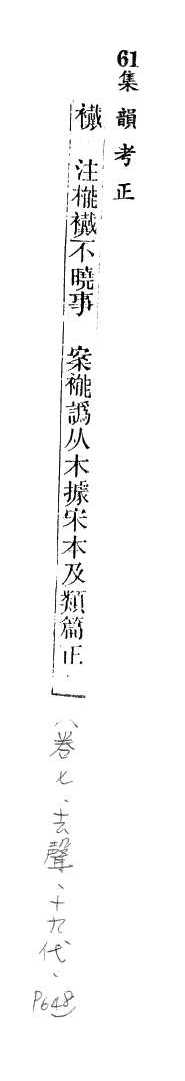 61集韻考正
襶　注䙞襶不曉事　案䙞譌从木據宋本及類篇正」
(卷七、去聲、十九代、P648)